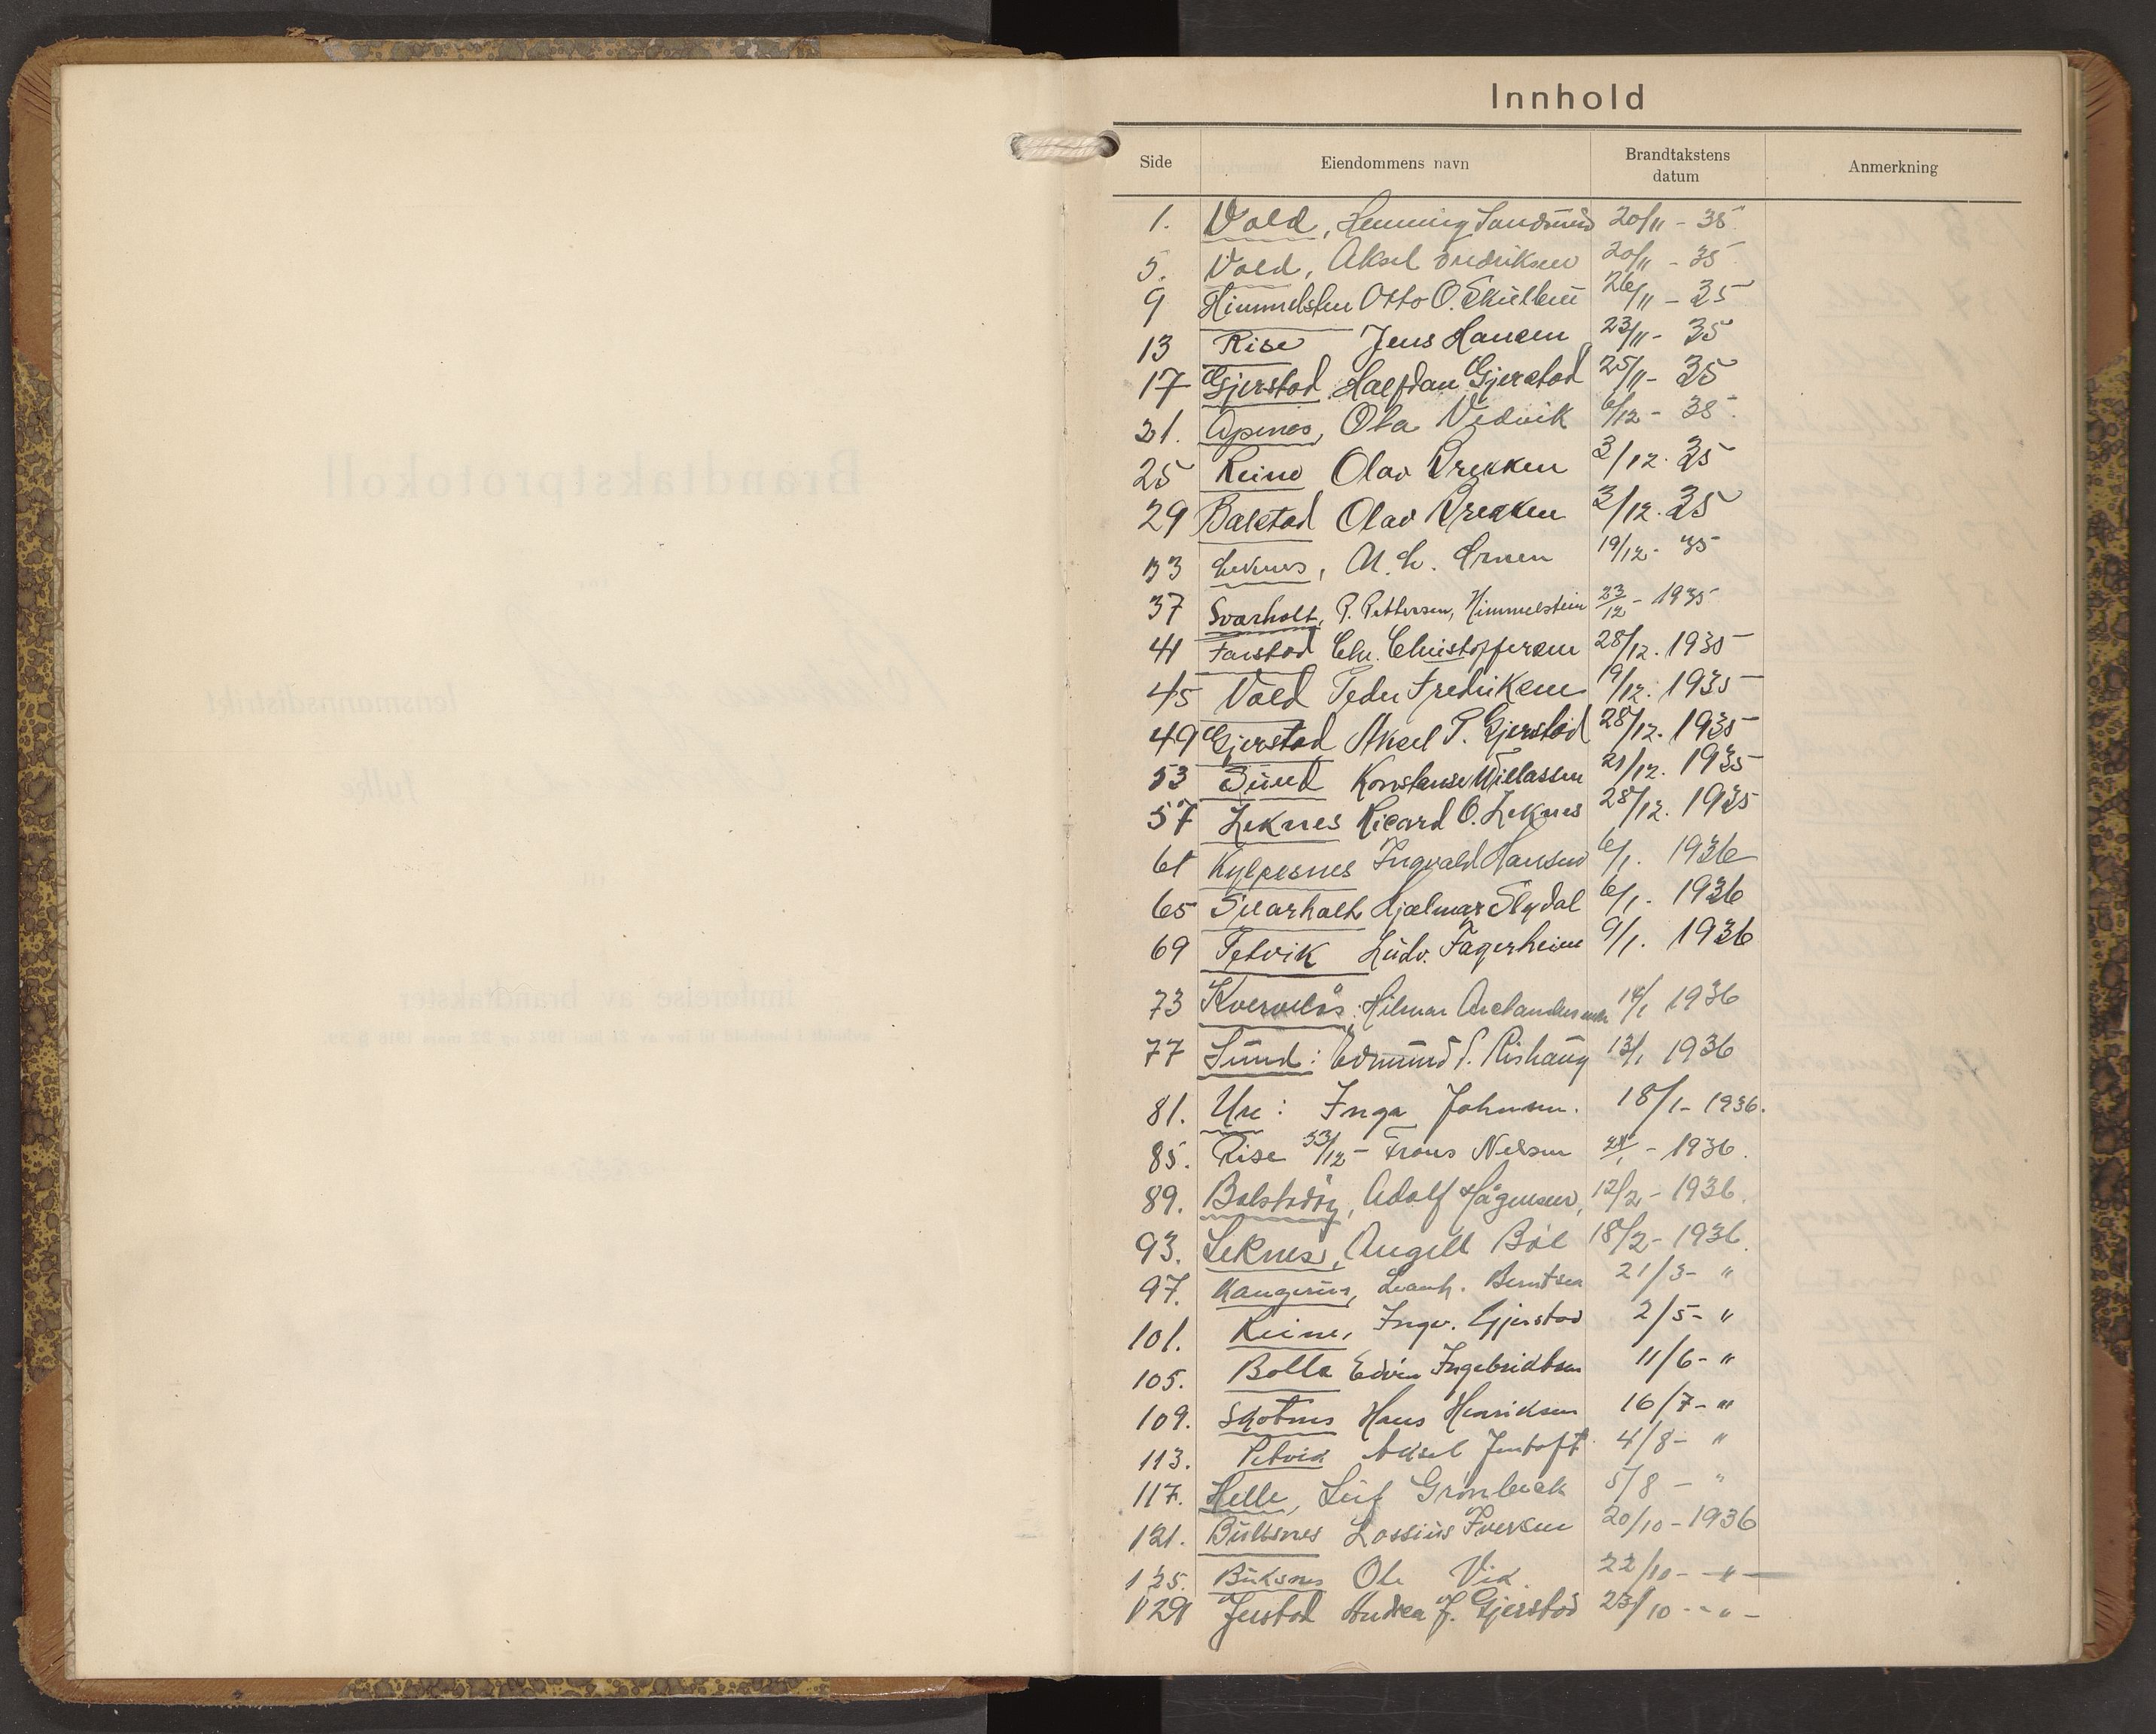 Innhold
Side Eiendommens navn Brandtakstens datum Anmerkning
1. Vold, Henning Sandsund 20/11 - 35
5. Vold, Aksel Fredriksen 20/11 - 35
9 Himmelsten Otto O. 26/11 - 35
13 Rise Jens Hansen 23/11 - 35
17 Gjerstad Halfdan Gjerstad 25/11 - 35
21. Apenes, Ola Vedvik 6/12 - 35.
25 Reine Olav Brekken 3/12. 35
29 Balstad Olav Brekken 3/12. 35
33 Leknes, 19/12 - 35
37 Svarholt, P. Pettersen, Himmelstein 23/12 - 1935
41 Farstad Chr. Christoffersen 28/12. 1935
45 Vold Peder Fredriksen 19/12. 1935
49 Gjerstad Aksel P. Gjerstad 28/12. 1935
53 Sund Konstanse Willassen 21/12. 1935
57 Leknes Ricard O. Leknes 28/12. 1935
61 Kylpesnes Ingvald Hansen 6/1. 1936
65 Svarholt Hjalmar Slydal 6/1. 1936
69 Petvik Ludv. Fagerheim 9/1. 1936
73 Hilmar 14/1 1936
77 Sund: Edmund S. Rishaug 13/1 1936
81. Ure: Inga Johnsen. 18/1 - 1936.
85. Rise 33/12 - Frans Nilsen - 1936.
89. Balstadøy, Adolf Hågensen, 12/2 - 1936.
93. Leknes, Angell Bøe 18/2 - 1936.
97. Haugerus, Leonh. Berntsen 21/3 - "
101. Reine, Ingv. Gjerstad 2/5 - "
105. Bolle Edvin Ingebrigtsen 11/6 - "
109. Skotnes Hans Henriksen 16/7 - "
113. Petvik Aksel Jentoft 4/8 - "
117. Helle, Leif Grønbeck 5/8 - "
121. Buksnes Lossius Iversen 20/10 - 1936
125. Buksnes Ole Vik 22/10 - " -
129 Jerstad Andrea J. Gjerstad 23/10 - " -